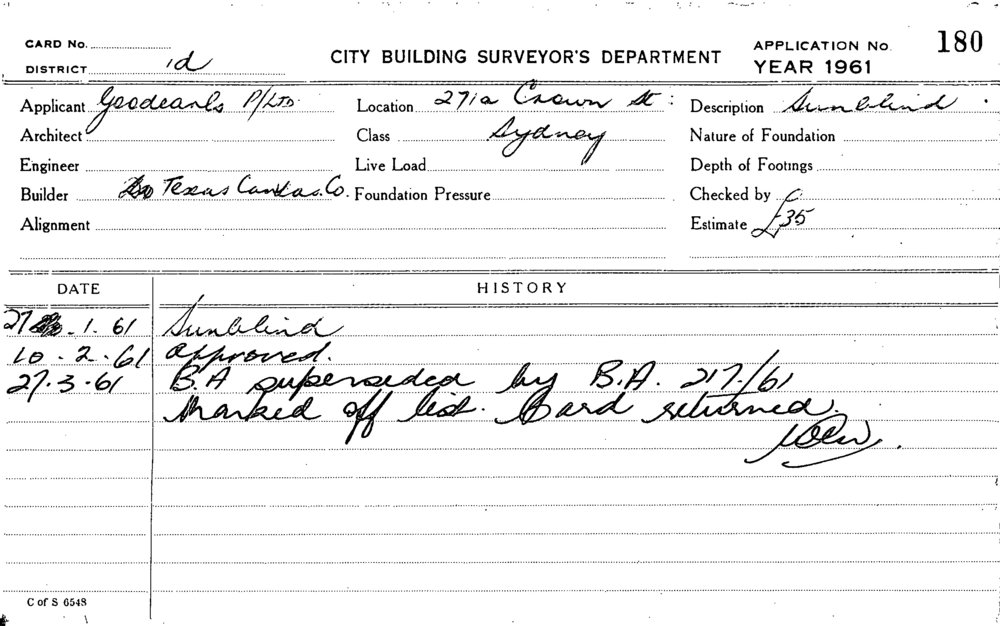 CARD No.
DISTRICT 1d
CITY BUILDING SURVEYOR'S DEPARTMENT
APPLICATION No. 180
YEAR 1961
Applicant Goodearls P/LTD.
Location 271a Crown St:
Description Sunblind.
Architect
Class Sydney
Nature of Foundation
Engineer
Live Load
Depth of Footings
Builder Texas Canvas. Co.
Foundation Pressure
Checked by
Alignment
Estimate £35
DATE HISTORY
27.1.61 Sunblind
10.2.61 approved.
27.3.61 B.A superseded by B.A. 217/61
Marked off list. Card returned.
C of S 6548